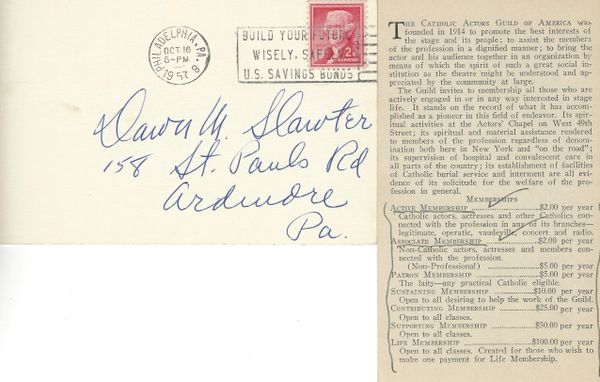 PHILADELPHIA, PA.
OCT 16
5-PM
1957
BUILD YOUR FUTURE
WISELY, SAFELY
U.S. SAVINGS BONDS
2¢
Dawn M. Slawter
158 St. Pauls Rd
Ardmore
Pa.
THE CATHOLIC ACTORS GUILD OF AMERICA was
founded in 1914 to promote the best interests of
the stage and its people; to assist the members
of the profession in a dignified manner; to bring the
actor and his audience together in an organization by
means of which the spirit of such a great social in-
stitution as the theatre might be understood and ap-
preciated by the community at large.
The Guild invites to membership all those who are
actively engaged in or in any way interested in stage
life. It stands on the record of what it has accom-
plished as a pioneer in this field of endeavor. Its spir-
itual activities at the Actors' Chapel on West 49th
Street; its spiritual and material assistance rendered
to members of the profession regardless of denom-
ination both here in New York and "on the road";
its supervision of hospital and convalescent care in
all parts of the country; its establishment of facilities
of Catholic burial service and interment are all evi-
dence of its solicitude for the welfare of the pro-
fession in general.
MEMBERSHIPS
ACTIVE MEMBERSHIP ........ $2.00 per year
Catholic actors, actresses and other Catholics con-
nected with the profession in any of its branches—
legitimate, operatic, vaudeville, concert and radio.
ASSOCIATE MEMBERSHIP ........ $2.00 per year
Non-Catholic actors, actresses and members con-
nected with the profession.
(Non-Professional) ........ $5.00 per year
PATRON MEMBERSHIP ........ $5.00 per year
The laity—any practical Catholic eligible.
SUSTAINING MEMBERSHIP ........ $10.00 per year
Open to all desiring to help the work of the Guild.
CONTRIBUTING MEMBERSHIP ........ $25.00 per year
Open to all classes.
SUPPORTING MEMBERSHIP ........ $50.00 per year
Open to all classes.
LIFE MEMBERSHIP ........ $100.00 per year
Open to all classes. Created for those who wish to
make one payment for Life Membership.